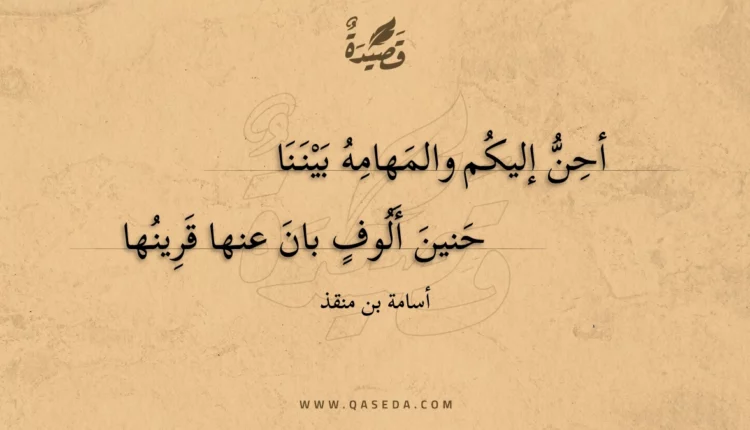 قَصِيْدَةٌ
أحِنُّ إليكُم والمَهامِهُ بَيْنَنَا
حَنينَ أَلُوفٍ بانَ عنها قَرِينُها
أسامة بن منقذ
WWW.QASEDA.COM